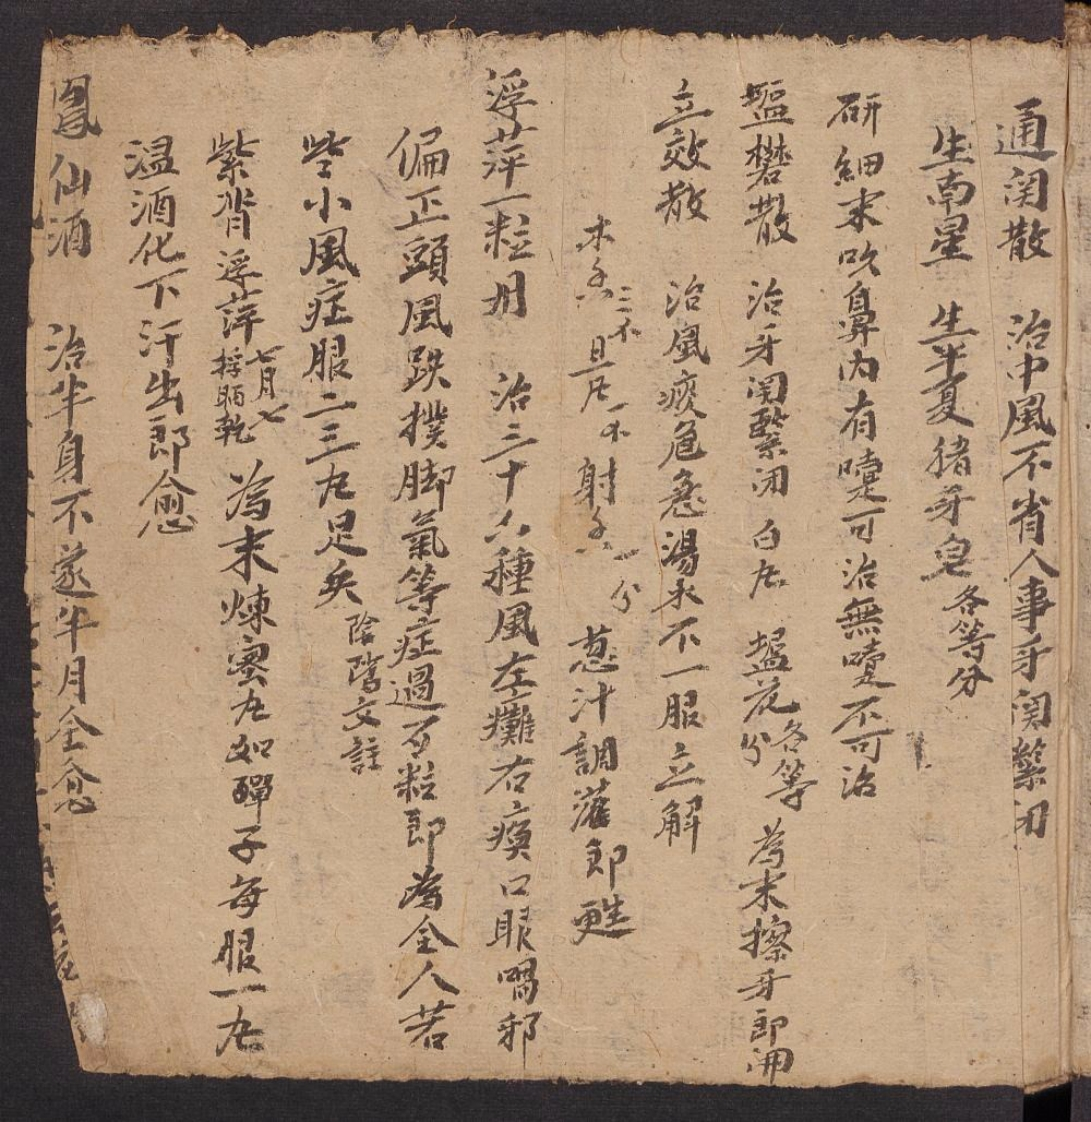 通関散　治中風不省人事牙関緊闭
生南星　生半夏　猪牙皂各等分
研細末吹鼻内有嚏可治無嚏不可治
塩礬散　治牙関緊闭　白凡　塩花各等分　為末擦牙即開
立效散　治風痰危急湯水不一服立解
木香三不　旦凡一不　射香一分　葱汁調灌即甦
浮萍一粒丹　治三十六種風左癱右瘓口眼喎邪
偏正頭風跌撲脚氣等症過百粒即為全人若
些小風症服二三丸足矣陰隲文註
紫背浮萍七月七採晒乾　為末煉蜜丸如彈子每服一丸
温酒化下汗出即愈
鳳仙酒　治半身不遂半月全愈